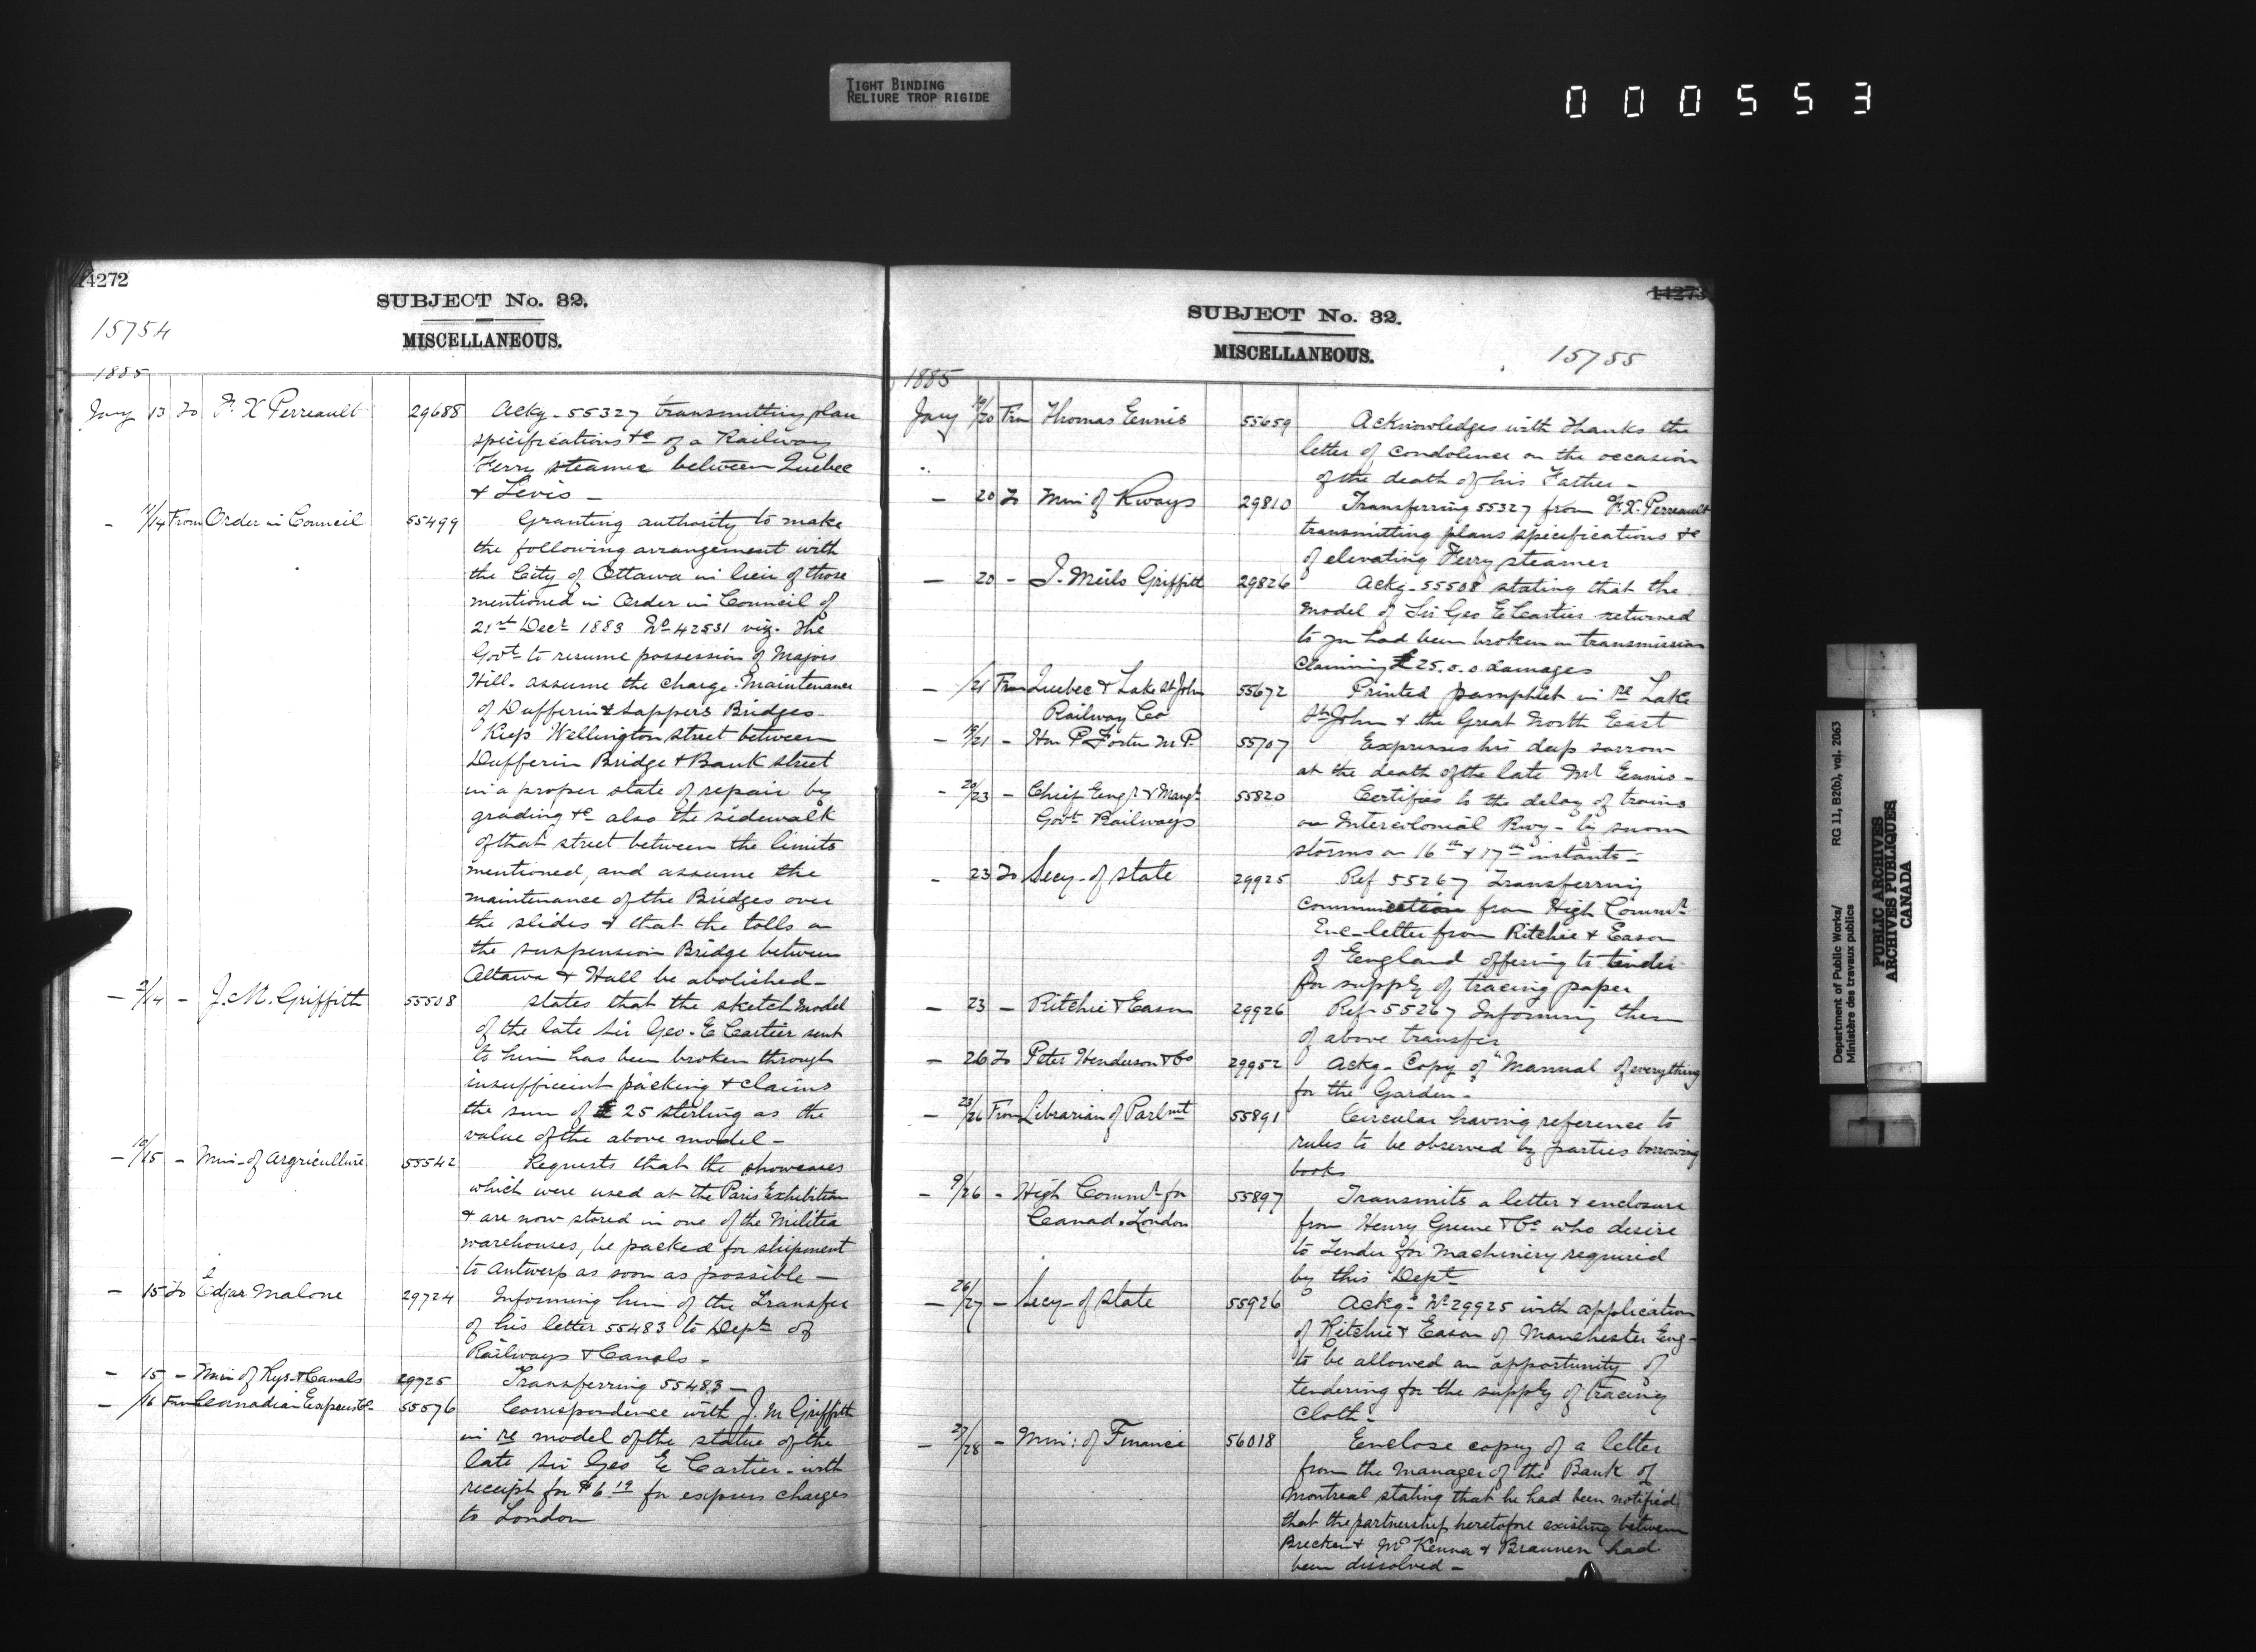 TIGHT BINDING
RELIURE TROP RIGIDE
000553
14272
SUBJECT No. 32.
15754
MISCELLANEOUS.
1885
Jany 13 To F. X Perreault 29688 Ackg - 55327 transmitting plan
specifications &c of a Railway
Ferry steamer between Quebec
& Levis -
- /14 From Order in Council 55499 Granting authority to make
the following arrangement with
the City of Ottawa in lieu of those
mentioned in Order in Council of
21st Decr 1883 No 42531 viz. The
Govt to resume possession of Majors
Hill - assume the charge - maintenance
of Dufferin & Sappers Bridges -
Keep Wellington street between
Dufferin Bridge & Bank street
in a proper state of repair by
grading &c also the sidewalk
of that street between the limits
mentioned, and assume the
maintenance of the Bridges over
the slides & that the tolls on
the suspension Bridge between
Ottawa & Hull be abolished -
- 2/14 - J. M. Griffith 55508 States that the sketch model
of the late Sir Geo. E Cartier sent
to him has been broken through
insufficient packing & claims
the sum of £ 25 sterling as the
value of the above model -
- 10/15 - Min - of Argriculture 55542 Requests that the showcases
which were used at the Paris Exhibition
& are now stored in one of the Militia
warehouses, be packed for shipment
to Antwerp as soon as possible -
- 15 To Edgar Malone 29724 Informing him of the Transfer
of his letter 55483 to Dept of
Railways & Canals -
- 15 - Min of Rys & Canals 29725 Transferring 55483 -
- /16 From Canadian Express Co 55576 Correspondence with J. M Griffith
in re model of the statue of the
late Sir Geo E Cartier - with
receipt for $6 19 for express charges
to London
14273
SUBJECT No. 32.
MISCELLANEOUS.
15755
1885
Jany 19/20 From Thomas Ennis 55659 Acknowledges with thanks the
letter of condolence on the occasion
of the death of his Father -
- 20 To Min of Rways 29810 Transferring 55327 from F. X. Perreault
transmitting plans specifications &c
of elevating Ferry steamer
- 20 - J. Griffith 29826 Ackg - 55508 stating that the
model of Sir Geo E Carties returned
to you had been broken in transmission
claiming £ 25. 0. 0 damages
- /21 From Quebec & Lake St John 55672 Printed pamphlet in re Lake
Railway Co St John & the Great North East
- 19/21 - Hon P. Foster M. P. 55707 Expresses his deep sorrow
at the death of the late Mr Ennis -
- 20/23 - Chief Engr & Mangr 55820 Certifies to the delay of trains
Govt Railways on Intercolonial Rwy - by snow
storms on 16th & 17th instants -
- 23 To Secy - of State 29925 Ref 55267 Transferring
communication from High Commr
Enc - letter from Ritchie & Eason
of England offering to tender
for supply of tracing paper
- 23 - Ritchie & Eason 29926 Ref - 55267 Informing them
of above transfer
- 26 To Peter Henderson & Co 29952 Ackg - Copy of "Manual of everything
for the Garden -"
- 23/26 From Librarian of Parlmt 55891 Circular having reference to
rules to be observed by parties borrowing
books
- 9/26 - High Commr for 55897 Transmits a letter & enclosure
Canada London from Henry Greene & Co who desire
to Tender for machinery required
by this Dept
- 26/27 - Secy - of State 55926 Ackg - No 29925 with application
of Ritchie & Eason of Manchester Eng -
to be allowed an opportunity of
tendering for the supply of tracing
cloth -
- 27/28 - Min: of Finance 56018 Enclose copy of a letter
from the Manager of the Bank of
Montreal stating that he had been notified
that the partnership heretofore existing between
Brecken & McKenna & Braunen had
been dissolved -
Department of Public Works/ RG 11, B2(b), vol. 2063
Ministère des travaux publics
PUBLIC ARCHIVES
ARCHIVES PUBLIQUES
CANADA